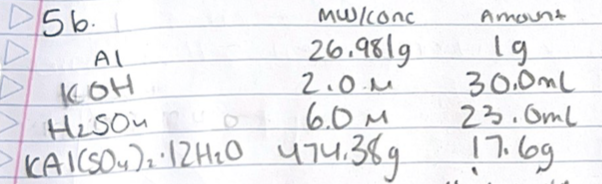 56. MW/conc Amount
Al 26.981g 1g
KOH 2.0 M 30.0mL
H₂SO₄ 6.0 M 23.0mL
KAl(SO₄)₂·12H₂O 474.38g 17.6g